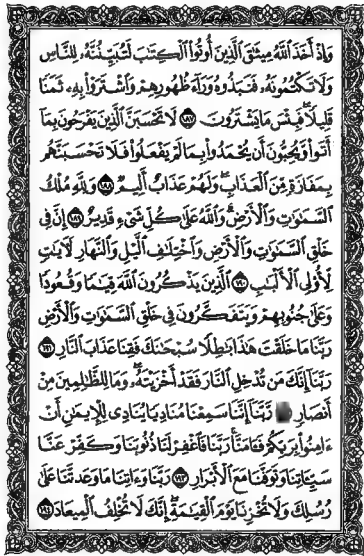 وَإِذْ أَخَذَ ٱللَّهُ مِيثَٰقَ ٱلَّذِينَ أُوتُوا۟ ٱلْكِتَٰبَ لَتُبَيِّنُنَّهُۥ لِلنَّاسِ
وَلَا تَكْتُمُونَهُۥ فَنَبَذُوهُ وَرَآءَ ظُهُورِهِمْ وَٱشْتَرَوْا۟ بِهِۦ ثَمَنًا
قَلِيلًا ۖ فَبِئْسَ مَا يَشْتَرُونَ ١٨٧ لَا تَحْسَبَنَّ ٱلَّذِينَ يَفْرَحُونَ بِمَآ
أَتَوا۟ وَّيُحِبُّونَ أَن يُحْمَدُوا۟ بِمَا لَمْ يَفْعَلُوا۟ فَلَا تَحْسَبَنَّهُم
بِمَفَازَةٍ مِّنَ ٱلْعَذَابِ ۖ وَلَهُمْ عَذَابٌ أَلِيمٌ ١٨٨ وَلِلَّهِ مُلْكُ
ٱلسَّمَٰوَٰتِ وَٱلْأَرْضِ ۗ وَٱللَّهُ عَلَىٰ كُلِّ شَىْءٍ قَدِيرٌ ١٨٩ إِنَّ فِى
خَلْقِ ٱلسَّمَٰوَٰتِ وَٱلْأَرْضِ وَٱخْتِلَٰفِ ٱلَّيْلِ وَٱلنَّهَارِ لَءَايَٰتٍ
لِّأُو۟لِى ٱلْأَلْبَٰبِ ١٩٠ ٱلَّذِينَ يَذْكُرُونَ ٱللَّهَ قِيَٰمًا وَقُعُودًا
وَعَلَىٰ جُنُوبِهِمْ وَيَتَفَكَّرُونَ فِى خَلْقِ ٱلسَّمَٰوَٰتِ وَٱلْأَرْضِ
رَبَّنَا مَا خَلَقْتَ هَٰذَا بَٰطِلًا سُبْحَٰنَكَ فَقِنَا عَذَابَ ٱلنَّارِ ١٩١
رَبَّنَآ إِنَّكَ مَن تُدْخِلِ ٱلنَّارَ فَقَدْ أَخْزَيْتَهُۥ ۖ وَمَا لِلظَّٰلِمِينَ مِنْ
أَنصَارٍ رَّبَّنَآ إِنَّنَا سَمِعْنَا مُنَادِيًا يُنَادِى لِلْإِيمَٰنِ أَنْ
ءَامِنُوا۟ بِرَبِّكُمْ فَـَٔامَنَّا ۚ رَبَّنَا فَٱغْفِرْ لَنَا ذُنُوبَنَا وَكَفِّرْ عَنَّا
سَيِّـَٔاتِنَا وَتَوَفَّنَا مَعَ ٱلْأَبْرَارِ ١٩٣ رَبَّنَا وَءَاتِنَا مَا وَعَدتَّنَا عَلَىٰ
رُسُلِكَ وَلَا تُخْزِنَا يَوْمَ ٱلْقِيَٰمَةِ ۗ إِنَّكَ لَا تُخْلِفُ ٱلْمِيعَادَ ١٩٤